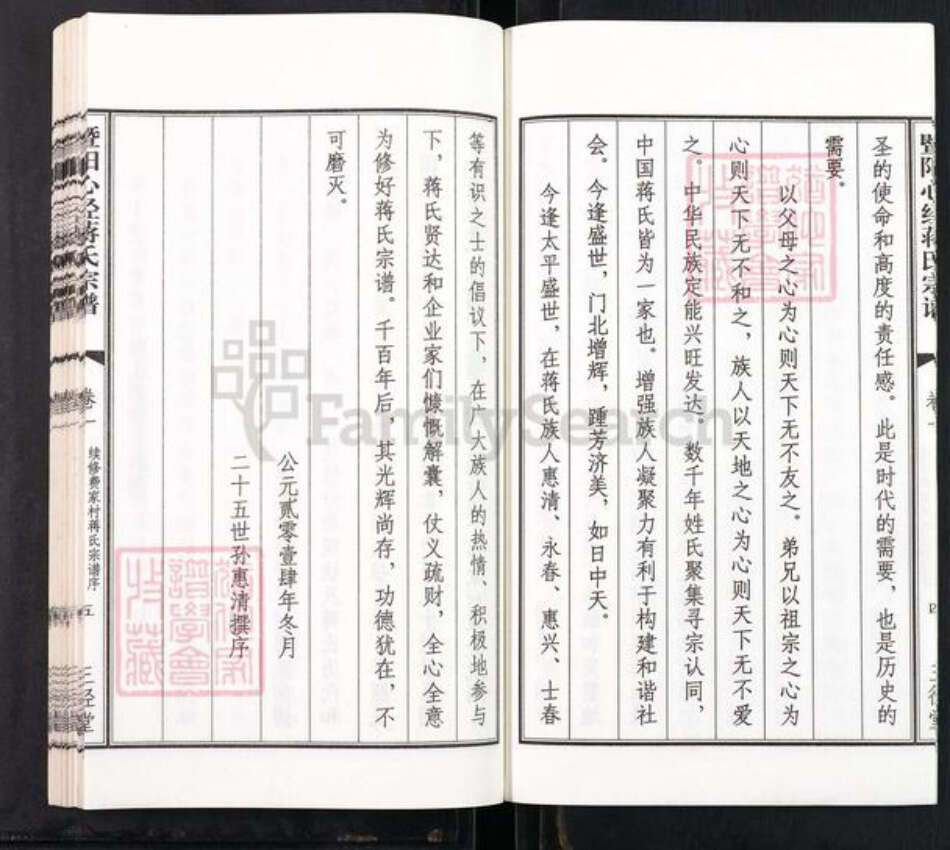 圣的使命和高度的责任感。此是时代的需要，也是历史的
需要。
以父母之心为心则天下无不友之。弟兄以祖宗之心为
心则天下无不和之，族人以天地之心为心则天下无不爱
之。中华民族定能兴旺发达。数千年姓氏聚集寻宗认同，
中国蒋氏皆为一家也。增强族人凝聚力有利于构建和谐社
会。今逢盛世，门北增辉，踵芳济美，如日中天。
今逢太平盛世，在蒋氏族人惠清、永春、惠兴、士春
等有识之士的倡议下，在广大族人的热情、积极地参与
下，蒋氏贤达和企业家们慷慨解囊，仗义疏财，全心全意
为修好蒋氏宗谱。千百年后，其光辉尚存，功德犹在，不
可磨灭。
公元贰零壹肆年冬月
二十五世孙惠清撰序
暨阳心经蒋氏宗谱
卷一
续修费家村蒋氏宗谱序
五
三径堂
FamilySearch